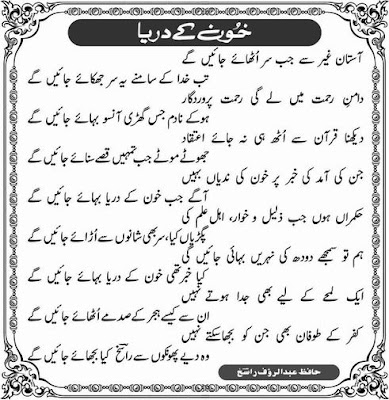 خُون کے دریا
آستانِ غیر سے جب سر اُٹھائے جائیں گے
تب خدا کے سامنے یہ سر جھکائے جائیں گے
دامنِ رحمت میں لے گی رحمتِ پروردگار
ہو کے نادم جس گھڑی آنسو بہائے جائیں گے
دیکھنا قرآن سے اُٹھ ہی نہ جائے اعتقاد
جھوٹے موٹے جب تمہیں قصے سنائے جائیں گے
جن کی آمد کی خبر پر خون کی ندیاں بہیں
آگے جب خون کے دریا بہائے جائیں گے
حکمراں ہوں جب ذلیل و خوار، اہلِ علم کی
پگڑیاں کیا، سر بھی شانوں سے اُڑائے جائیں گے
ہم تو سمجھے دودھ کی نہریں بہائی جائیں گی
کیا خبر تھی خون کے دریا بہائے جائیں گے
ایک لمحے کے لیے بھی جدا ہوتے نہیں
ان سے کیسے ہجر کے صدمے اُٹھائے جائیں گے
کفر کے طوفان بھی جن کو بجھا سکتے نہیں
وہ دیے پھونکوں سے راسخؔ کیا بجھائے جائیں گے
حافظ عبدالرؤف راسخ